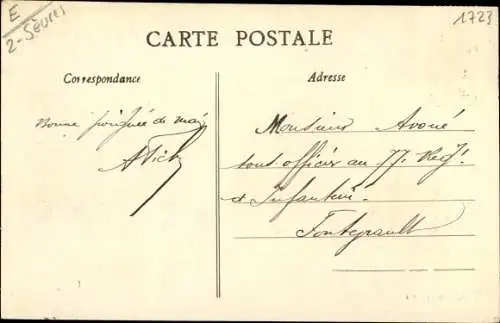 E
2-Sèvres
1723
CARTE POSTALE
Correspondance
Adresse
Bonne poignée de main
Monsieur Avoué
sous officier au 77. Reg!
d'Infanterie
Fontevrault